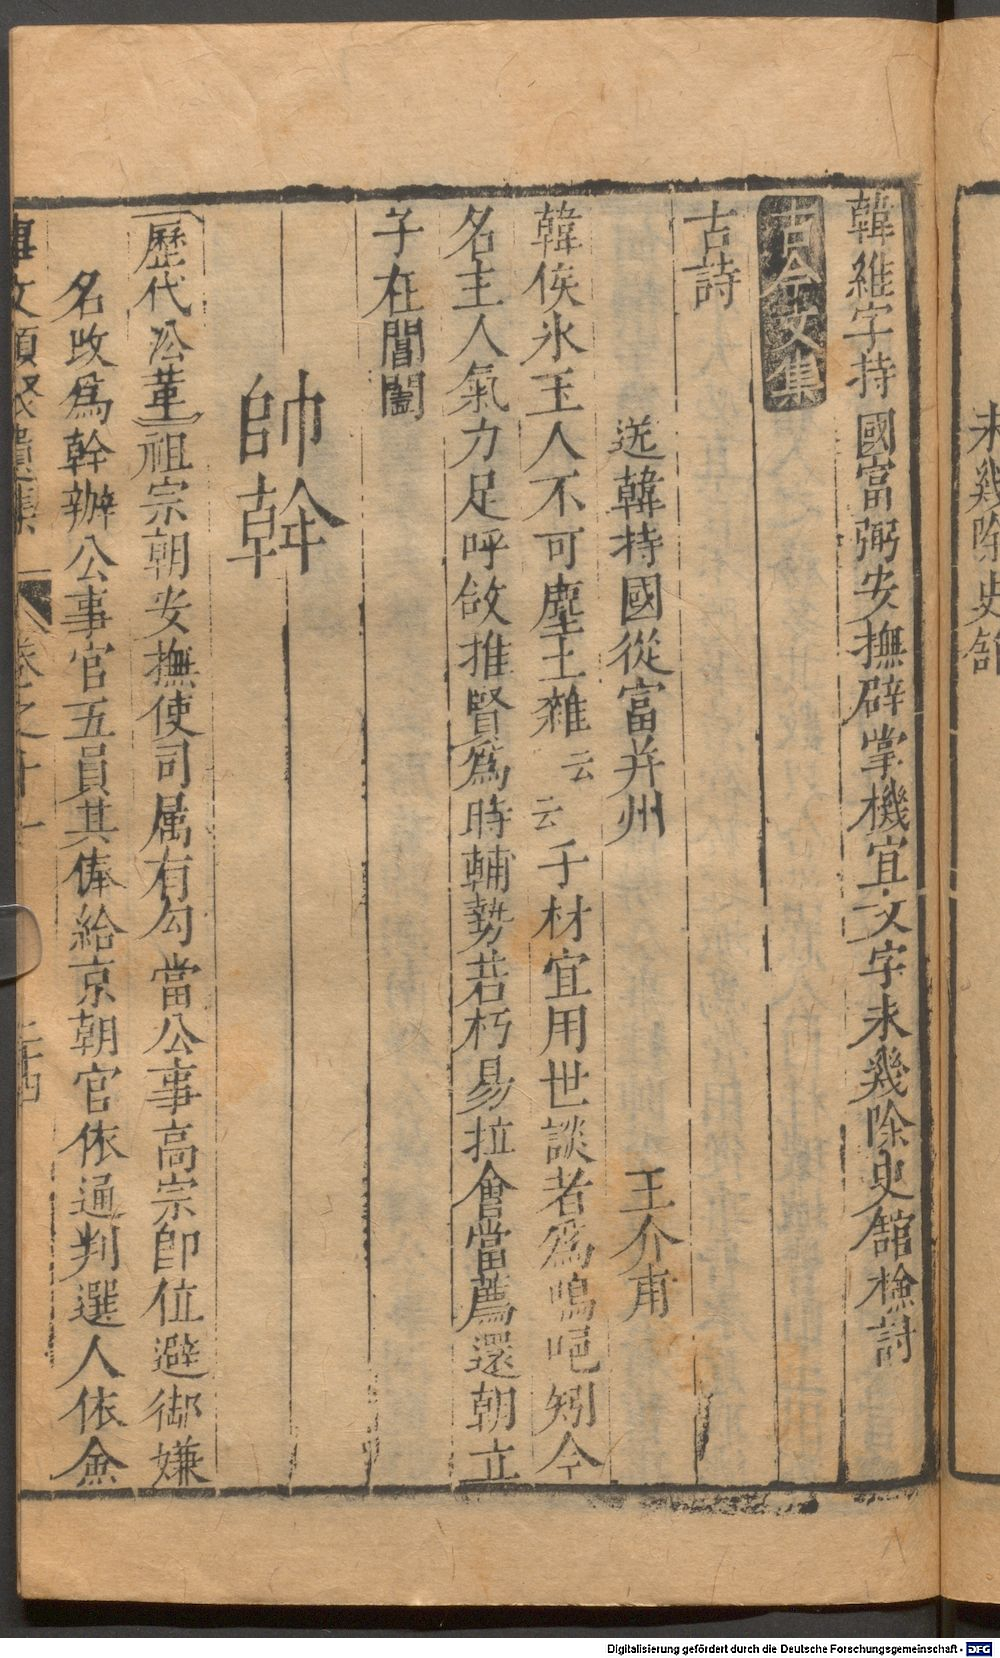 未幾除史館
韓維字持國富弼安撫辟掌機宜文字未幾除史館檢討
古今文集
古詩
送韓持國從富并州 王介甫
韓侯氷玉人不可塵土雜云云千材宜用世談者爲嗚唈矧今
名主人氣力足呼欱推賢爲時輔勢若朽易拉會當薦還朝立
子在閶闔
帥幹
歷代沿革祖宗朝安撫使司属有勾當公事高宗即位避御嫌
名改爲幹辦公事官五員其俸給京朝官依通判選人依僉
事文類聚遺集 卷之十一 二十四
Digitalisierung gefördert durch die Deutsche Forschungsgemeinschaft - DFG